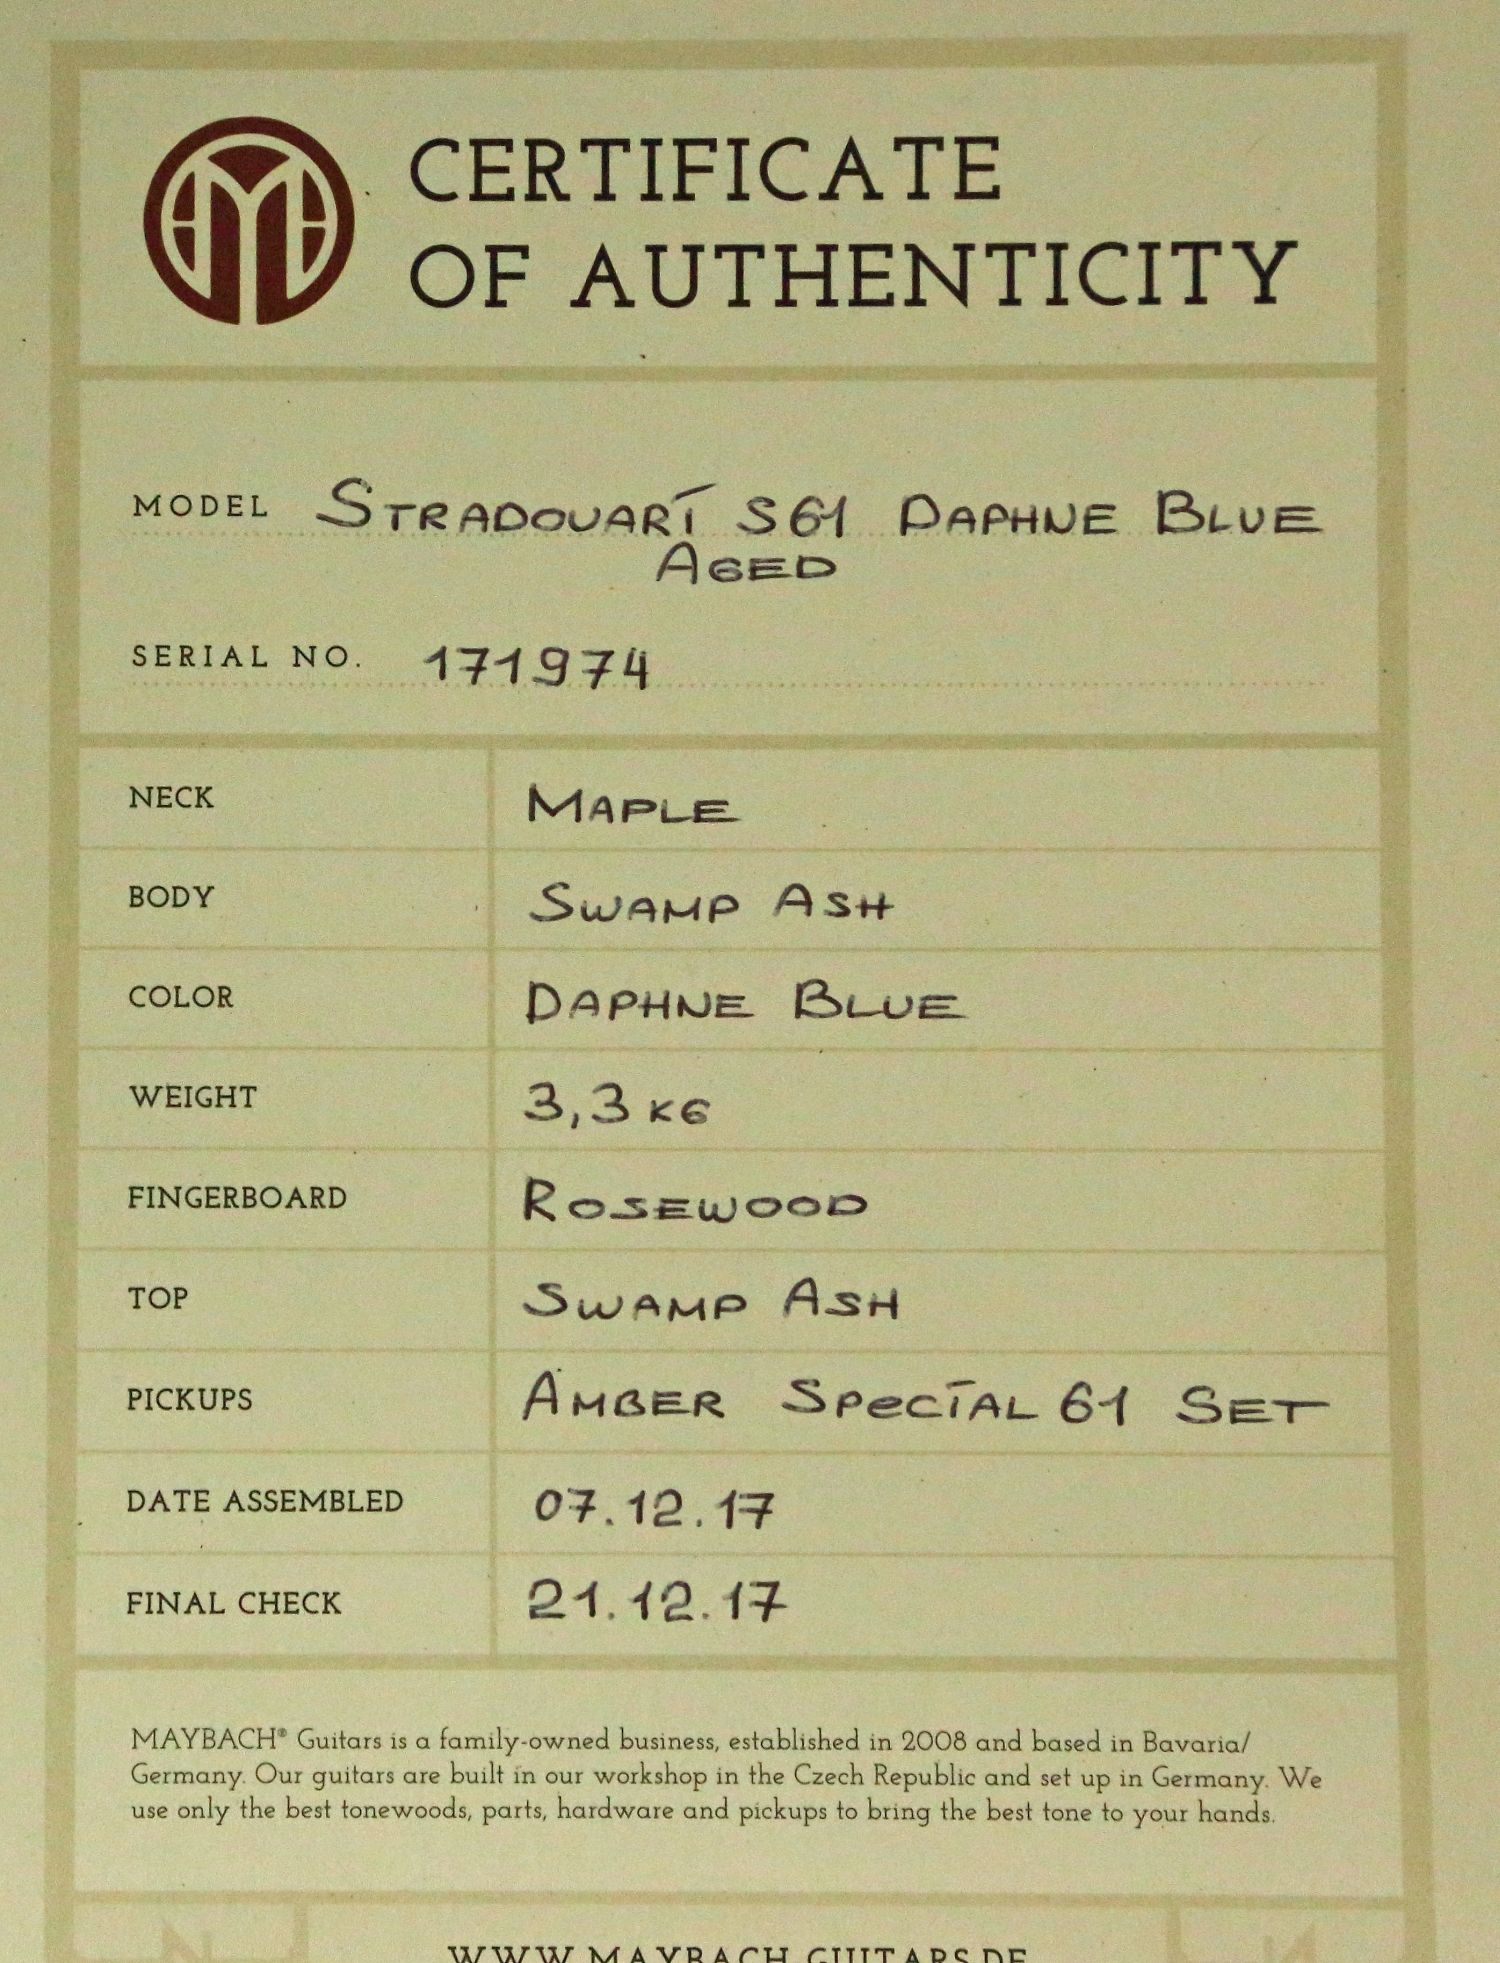 CERTIFICATE
OF AUTHENTICITY
MODEL STRADOVART S61 DAPHNE BLUE
AGED
SERIAL NO. 171974
NECK MAPLE
BODY SWAMP ASH
COLOR DAPHNE BLUE
WEIGHT 3,3 KG
FINGERBOARD ROSEWOOD
TOP SWAMP ASH
PICKUPS AMBER SPECIAL 61 SET
DATE ASSEMBLED 07.12.17
FINAL CHECK 21.12.17
MAYBACH® Guitars is a family-owned business, established in 2008 and based in Bavaria/
Germany. Our guitars are built in our workshop in the Czech Republic and set up in Germany. We
use only the best tonewoods, parts, hardware and pickups to bring the best tone to your hands.
WWW.MAYBACH-GUITARS.DE